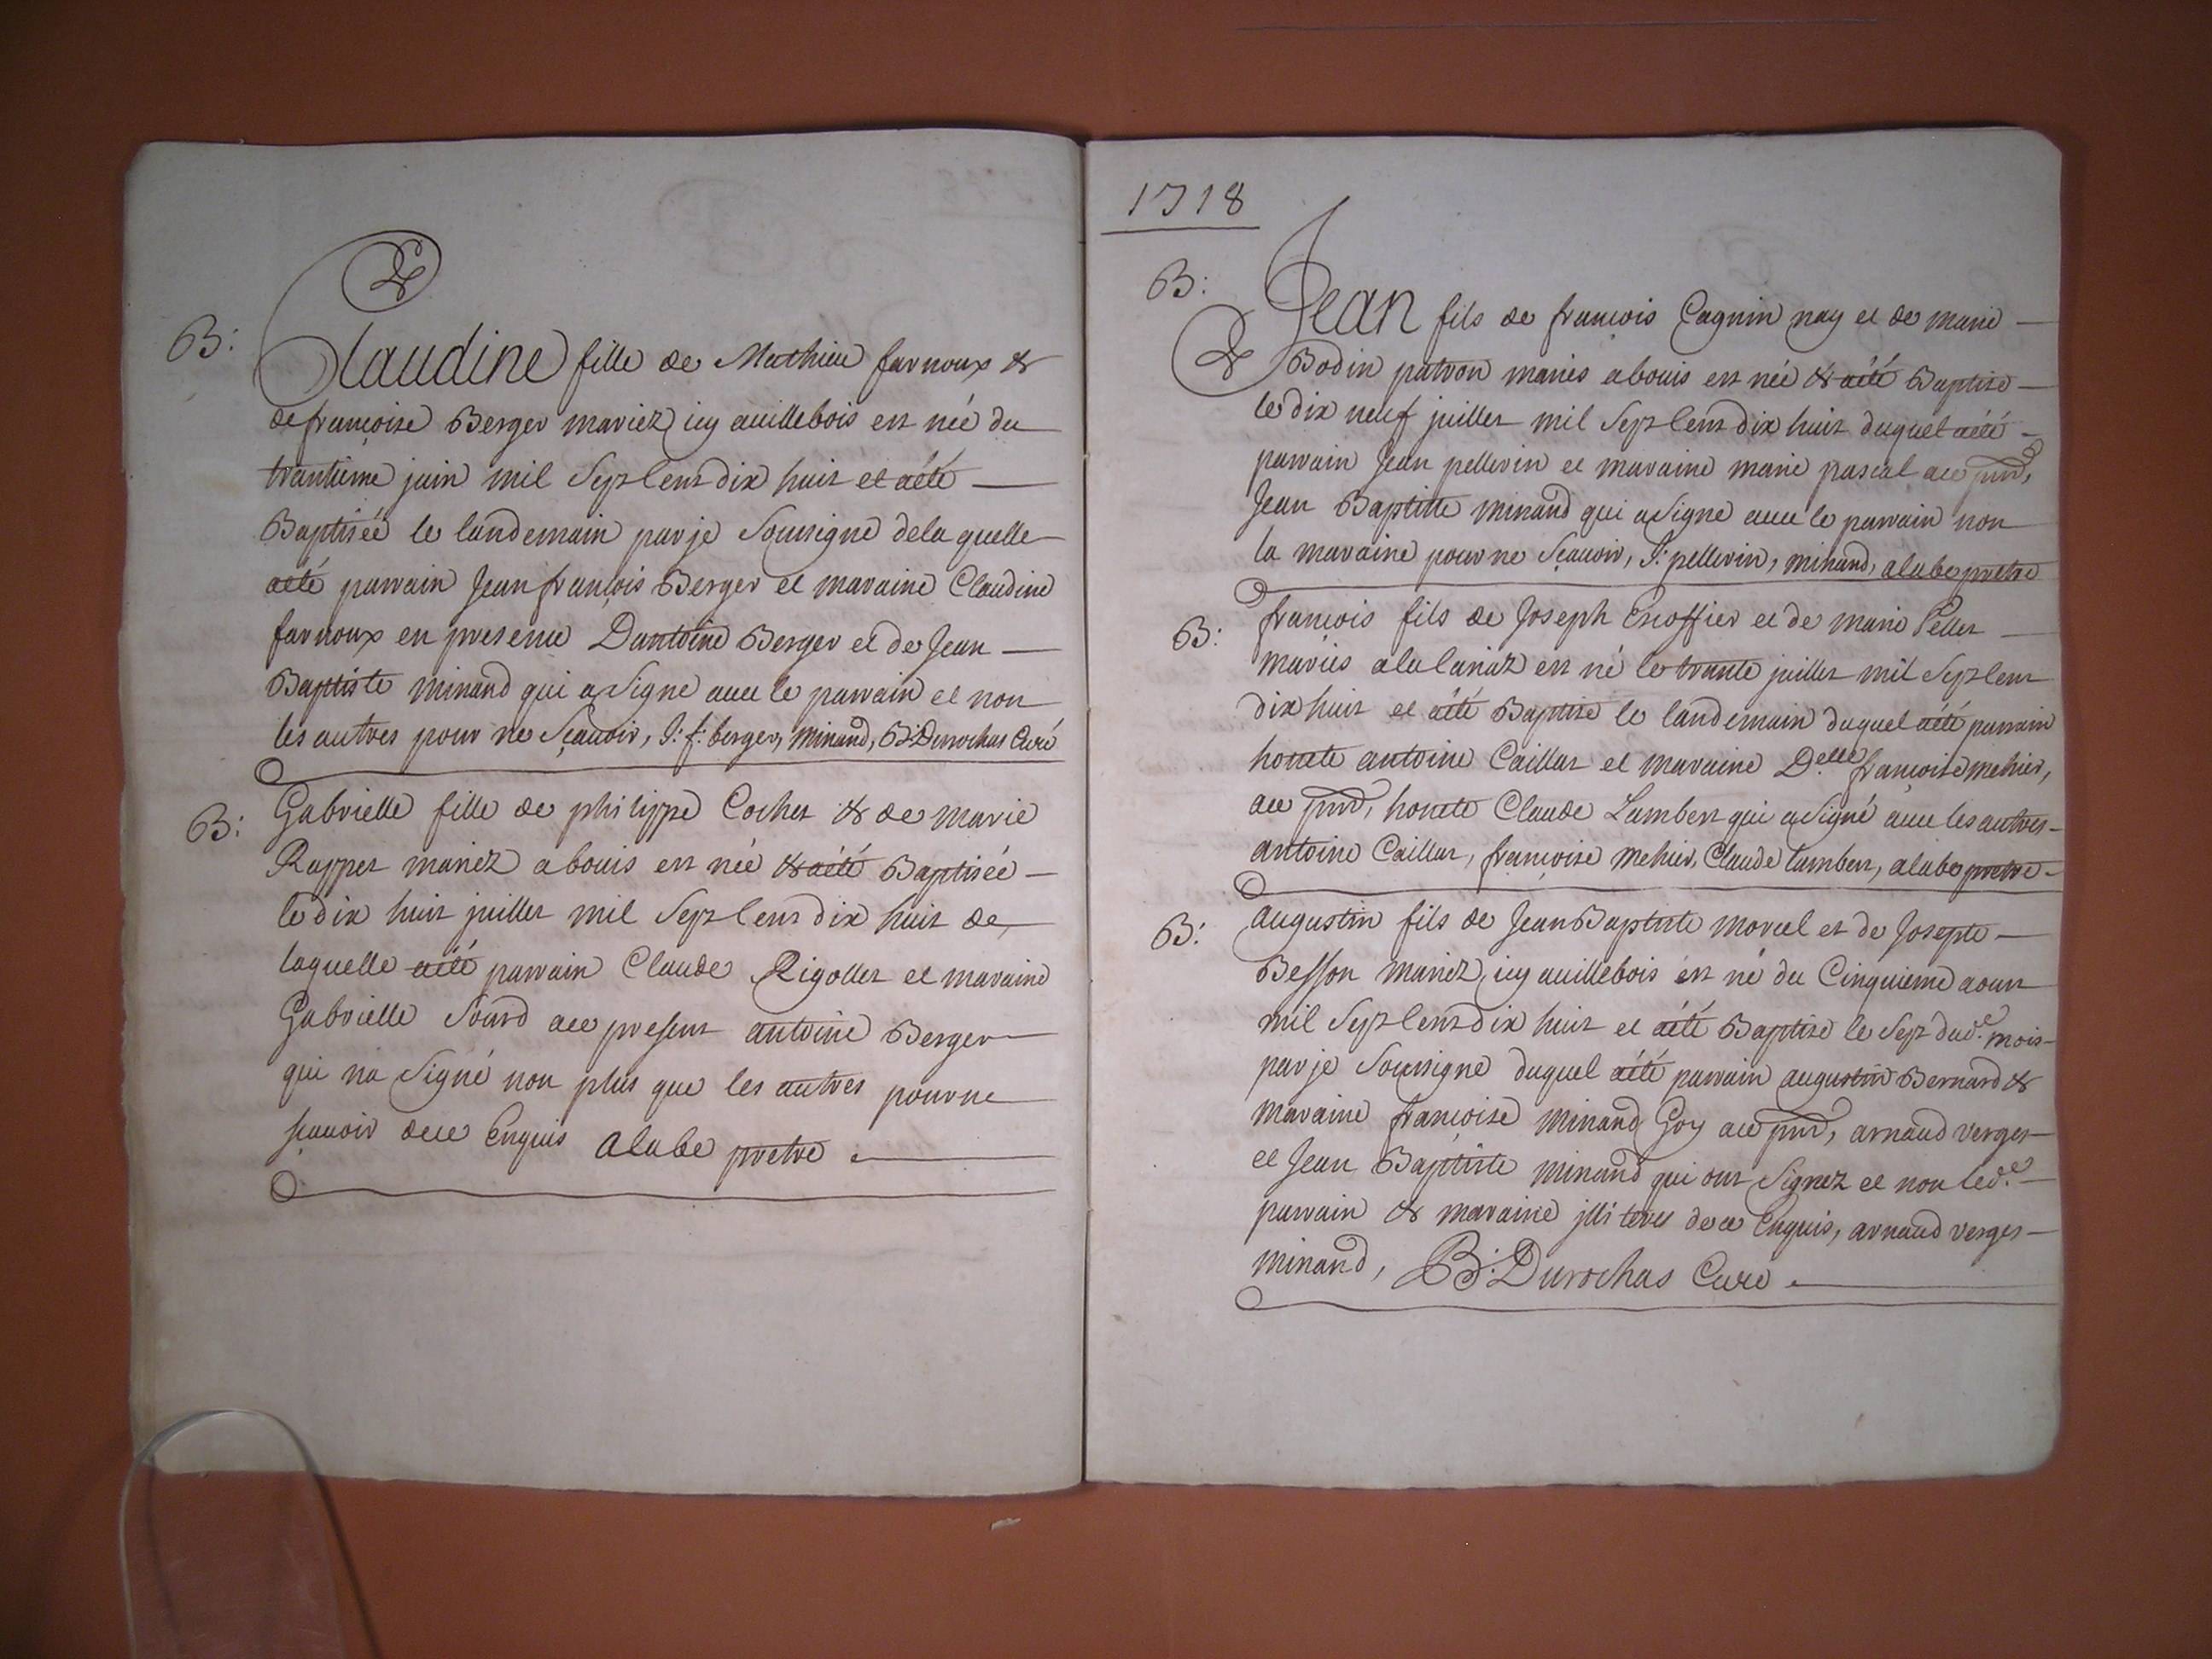 B:
Claudine fille de Mathieu farnoux &
de françoise Berger mariez icy auillebois est née du
trantieme juin mil Sept Cent dix huit et aété
Baptiséé le landemain par je Sousigne dela quelle
aeté parrain Jean françois Berger et maraine Claudine
farnoux en presence Dantoine Berger et de Jean
Baptiste minand qui a Signe auec le parrain et non
les autres pour ne Sçauoir, J: f: berger, minand, B: Durochas Curé
B:
Gabrielle fille de philippe Cochet & de marie
Rappet mariez abouis est née & aété Baptiséé
le dix huit juillet mil Sept Cent dix huit de
laquelle aété parrain Claude Rigollet et maraine
Gabrielle Sourd ace present antoine Berger
qui na Signé non plus que les autres pour ne
sçauoir dece Enquis alabe pretre
1718
B:
Jean fils de françois Cagnin nay et de marie
Bodin patron mariés abouis est née & aété Baptise
le dix neuf juillet mil Sept Cent dix huit duquel aété
parrain Jean pellerin et maraine marie pascal ace pnt,
Jean Baptitte minand qui a Signe auec le parrain non
la maraine pour ne Sçauoir, J: pellerin, minand, alabe pretre
B:
françois fils de Joseph Croffier et de marie Pellet
mariés ala lariaz est né le trante juillet mil Sept Cent
dix huit et aété Baptise le landemain duquel aété parrain
honete antoine Caillat et maraine D.elle françoise mehier,
ace pnt, honete Claude Lambert qui a Signé auec les autres
antoine Caillat, françoise mehier, Claude lambert, alabe pretre
B:
augustin fils de Jean Baptiste morcel et de Josepte
Besson mariez icy auillebois est né du Cinquieme aoust
mil Sept Cent dix huit et aété Baptise le Sept dud.e mois
par je Sousigne duquel aété parrain augustin Bernard &
maraine françoise minand Goy ace pnt, arnaud verger
et Jean Baptiste minand qui ont Signez et non led.e
parrain & maraine jlliteres de ce Enquis, arnaud verger
minand, B: Durochas Cure